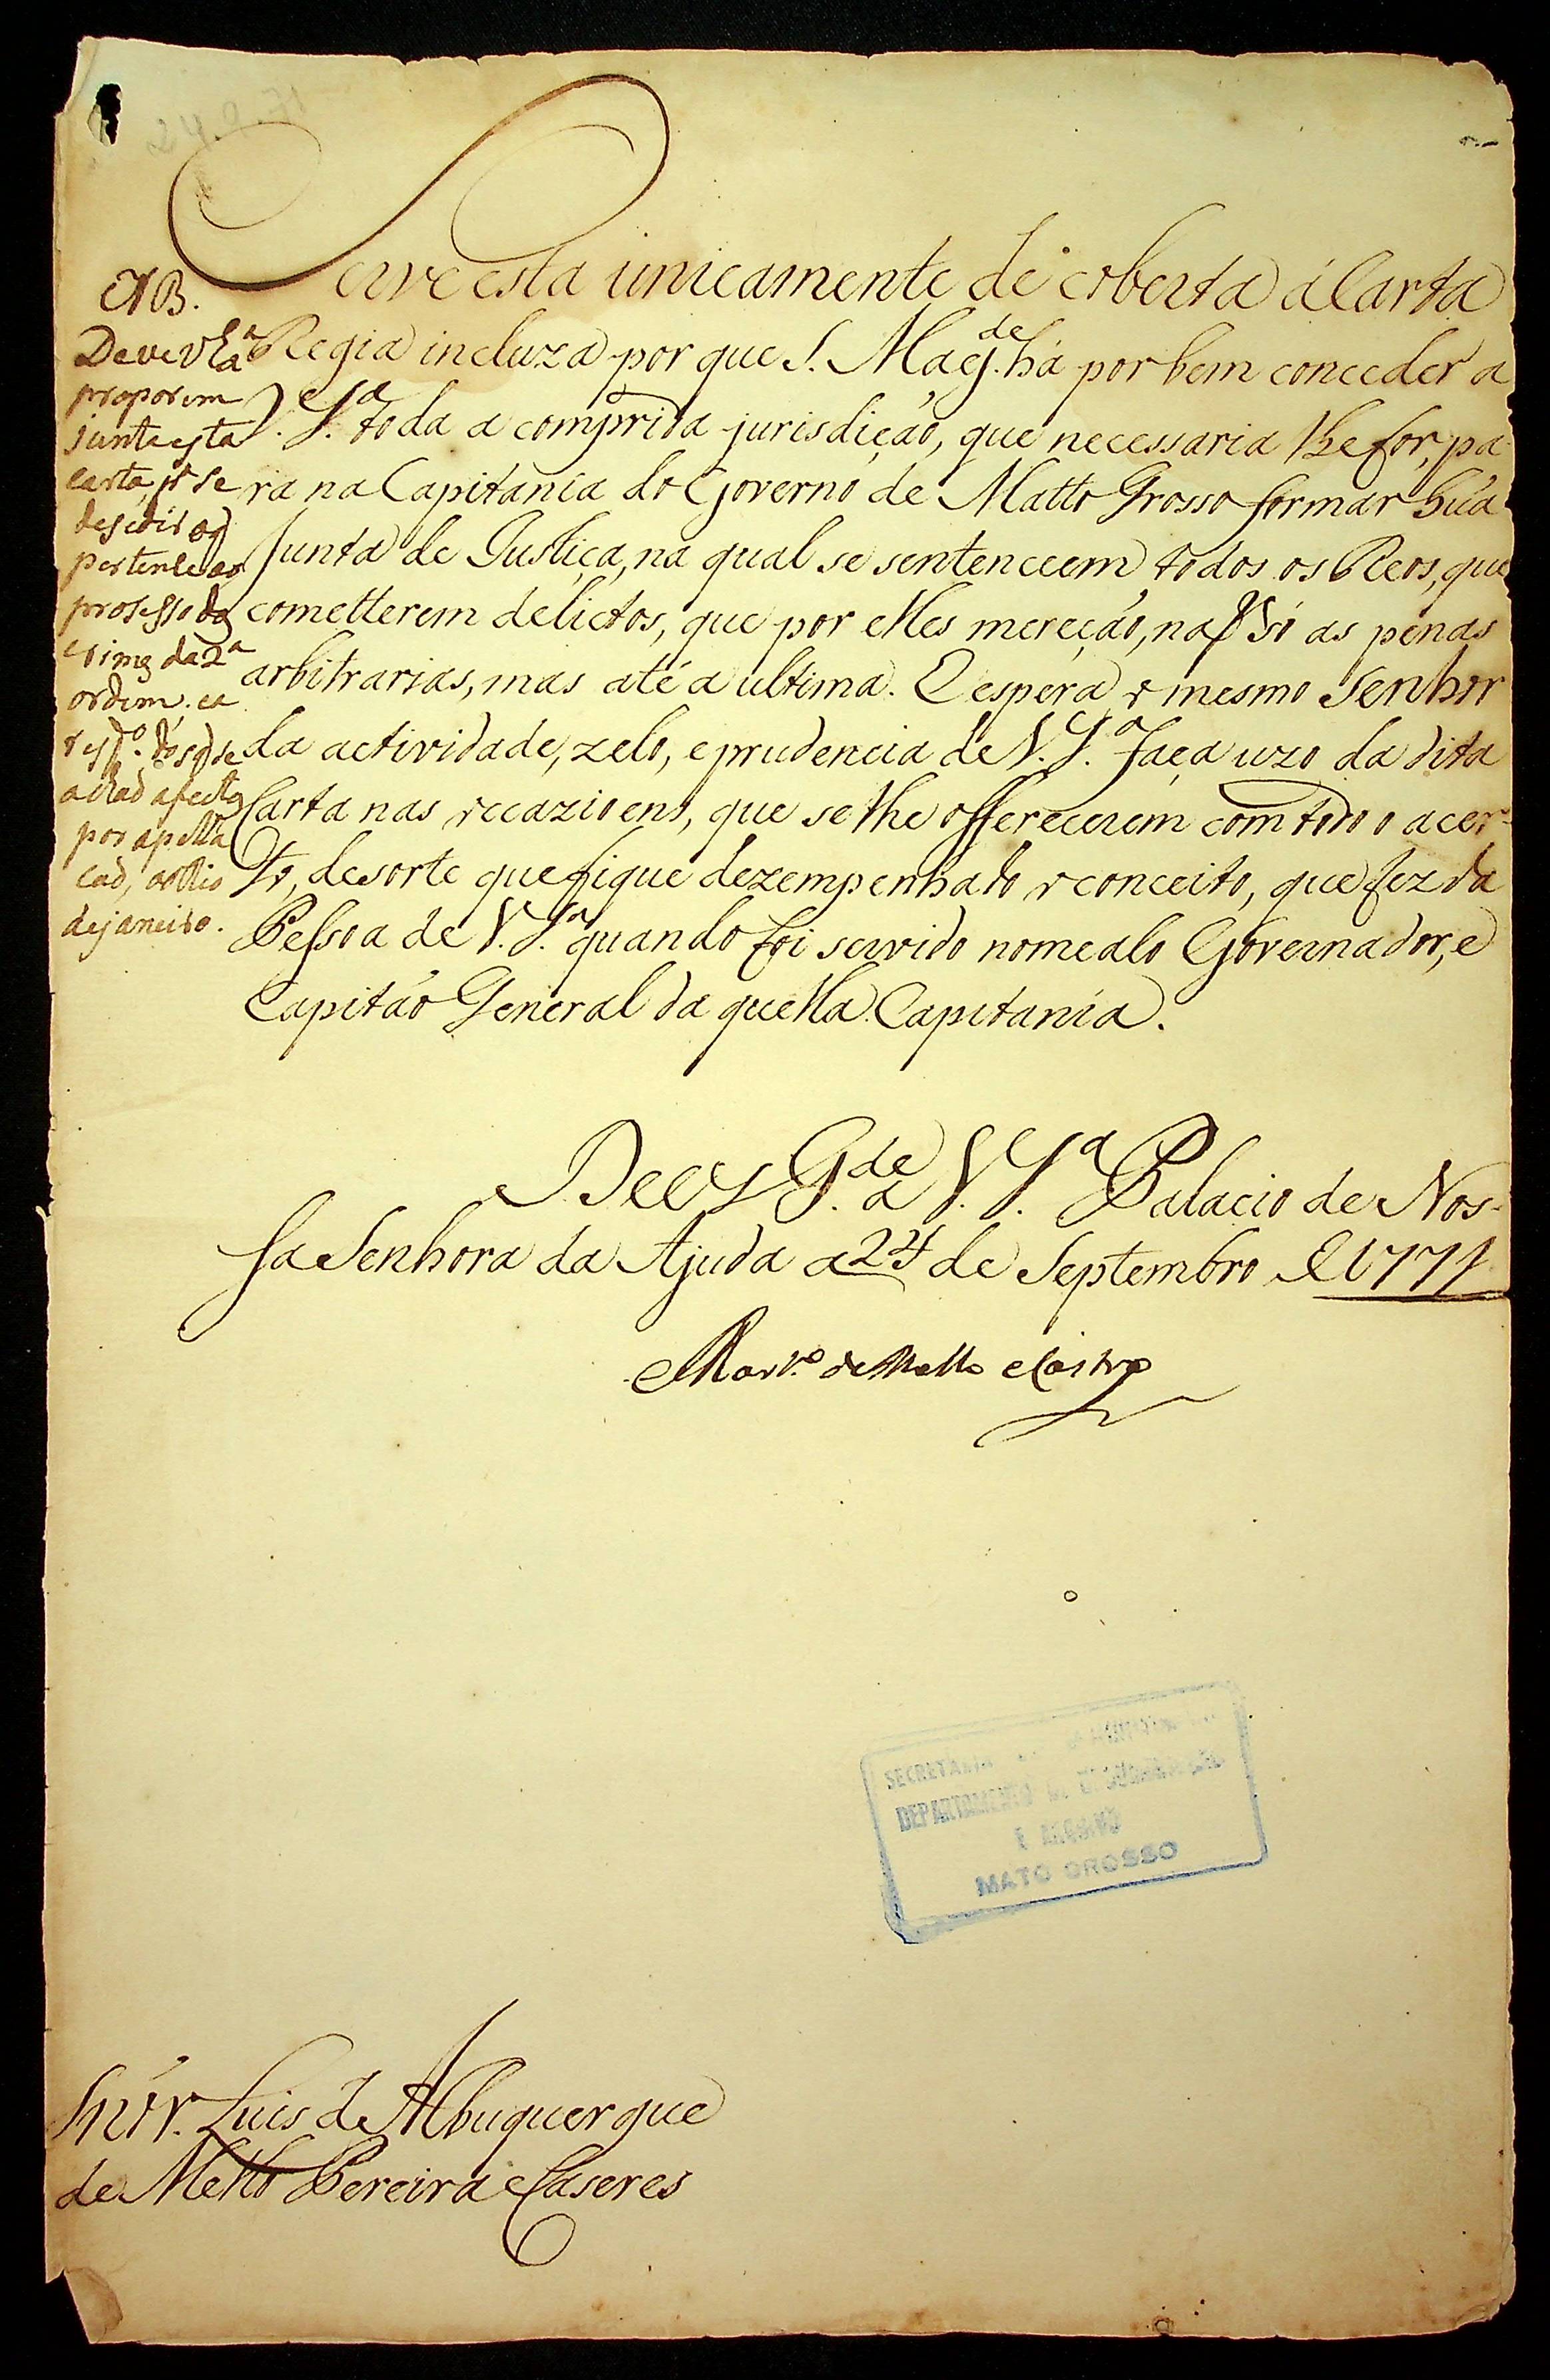 Serve esta unicamente de coberta á Carta
Regia incluza por que S. Mag.de há por bem conceder a
V. S.a toda a comprida jurisdição, que necessaria lhe for, pa-
ra na Capitania do Governo de Matto Grosso formar hũa
Junta de Justiça, na qual se sentenceem todos os Reos, que
cometterem delictos, que por elles mereção, não só as penas
arbitrarias, mas até a ultima. E espera o mesmo Senhor
da actividade, zelo, e prudencia de V. S.a faça uzo da dita
Carta nas occazioens, que se lhe offerecerem com todo o acer-
to, de sorte que fique dezempenhado o conceito, que fez da
Pessoa de V. S.a quando foi servido nomealo Governador, e
Capitão General da quella Capitania.
NB.
Deve V Ex.a
propor em
junta esta
carta, p.a se
desedir o q̃
pertence ao
prosesso dos
crimes da 2a
ordem. e a
resp.to dos q̃ se
achaõ afectos
por apella
caõ, ao Rio
de janeiro.
Deos G.de a V. S.a Palacio de Nos-
sa Senhora da Ajuda a 24 de Septembro de 1771
Mart.o de Mello e Castro
SECRETARIA
DEPARTAMENTO DE DOCUMENTAÇÃO
E ARQUIVO
MATO GROSSO
Snõr. Luis de Albuquerque
de Mello Pereira e Caseres